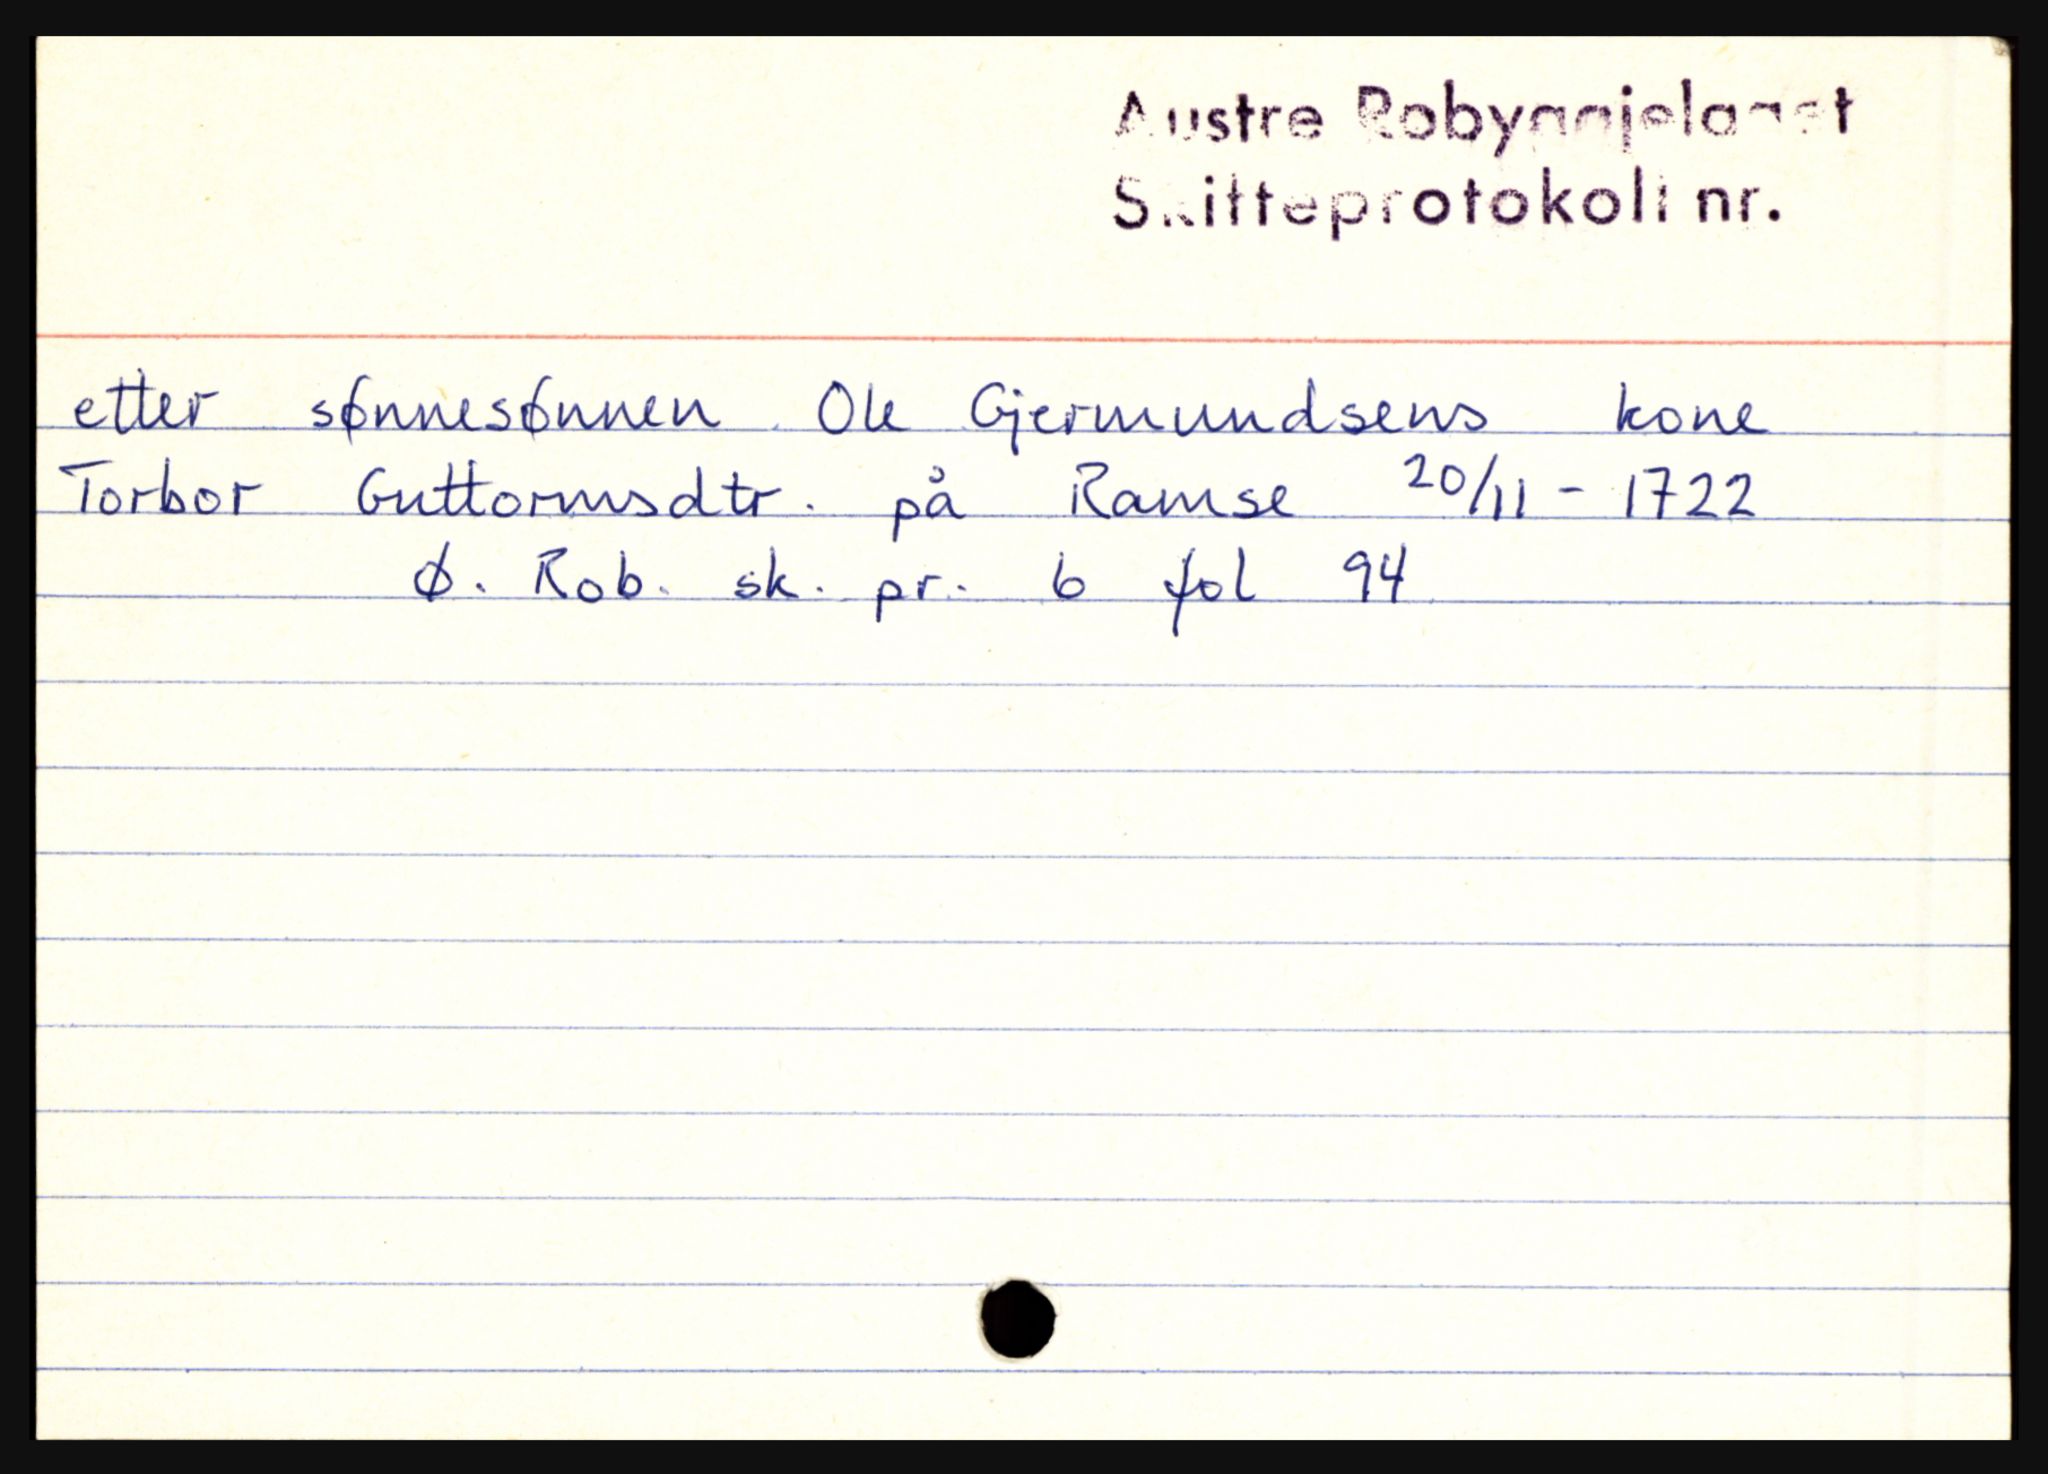 Austre Robyggjelaget
Skifteprotokoll nr.
etter sønnesønnen Ole Gjermundsens kone
Torbor Guttormsdtr. på Ramse 20/11 - 1722
Ø. Rob. sk. pr. 6 fol 94